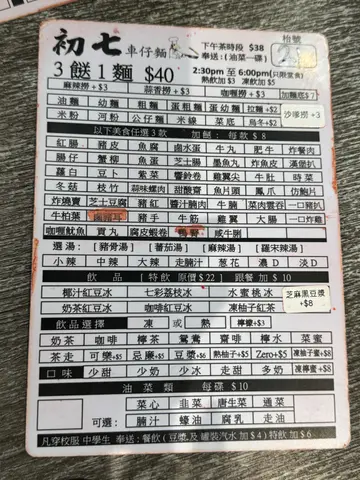 初七 車仔麵 下午茶時段 $38 枱號
奉送:(油菜一碟)
3 餸 1 麵 $40 2:30pm 至 6:00pm(只限堂食)
熱飲加 $3 凍飲加 $5
麻辣撈 +$3 蒜香撈 +$3 咖喱撈 +$3 加麵底 +$7
油麵 幼麵 粗麵 蛋粗麵 蛋幼麵 拉麵+$2 沙嗲撈 +3
米粉 河粉 公仔麵 米線 菜底 烏冬+$2
以下美食任選3款 加餸:每款 $8
紅腸 豬皮 魚腐 鹵水蛋 牛丸 肥牛 炸餐肉
腸仔 蟹柳 魚蛋 芝士腸 墨魚丸 炸魚皮 漢堡扒
蘿白 豆卜 紫菜 響鈴卷 雞翼尖 牛肚 時菜
冬菇 枝竹 蒜味螺肉 甜酸齋 魚片頭 鳳爪 仿鮑片
炸燒賣 芝士腐 豬紅 醬汁腩肉 牛腩 菜肉雲吞 一口豬扒
牛柏葉 豬手 牛筋 雞翼 大腸 一口牛扒
咖喱魷魚 貢丸 腐皮蝦卷 咸牛脷
選湯:[豬骨湯] [蕃茄湯] [麻辣湯] [羅宋辣湯]
小辣 中辣 大辣 走腩汁 葱花 濃D 淡D
飲品 [特飲 原價$22] 跟餐加 $10
椰汁紅豆冰 七彩荔枝冰 水蜜桃冰 芝麻黑豆漿 +$8
奶茶紅豆冰 咖啡紅豆冰 凍柚子紅茶
飲品選擇 凍 或 熱 檸檬+$3
奶茶 咖啡 檸茶 鴛鴦 齋啡 檸水 菜蜜
茶走 可樂+$5 忌廉+$5 豆漿+$6 熱柚子+$5 Zero+$5 凍柚子蜜+$8
口味 少甜 少奶 少冰 走甜 多奶 凍檸蜜+$8
油菜類 每碟 $10
菜心 韭菜 唐生菜 通菜
可選: 腩汁 蠔油 腐乳 走油
凡穿校服 中學生 奉送:餐飲(豆漿及罐裝汽水加$4)特飲加$6